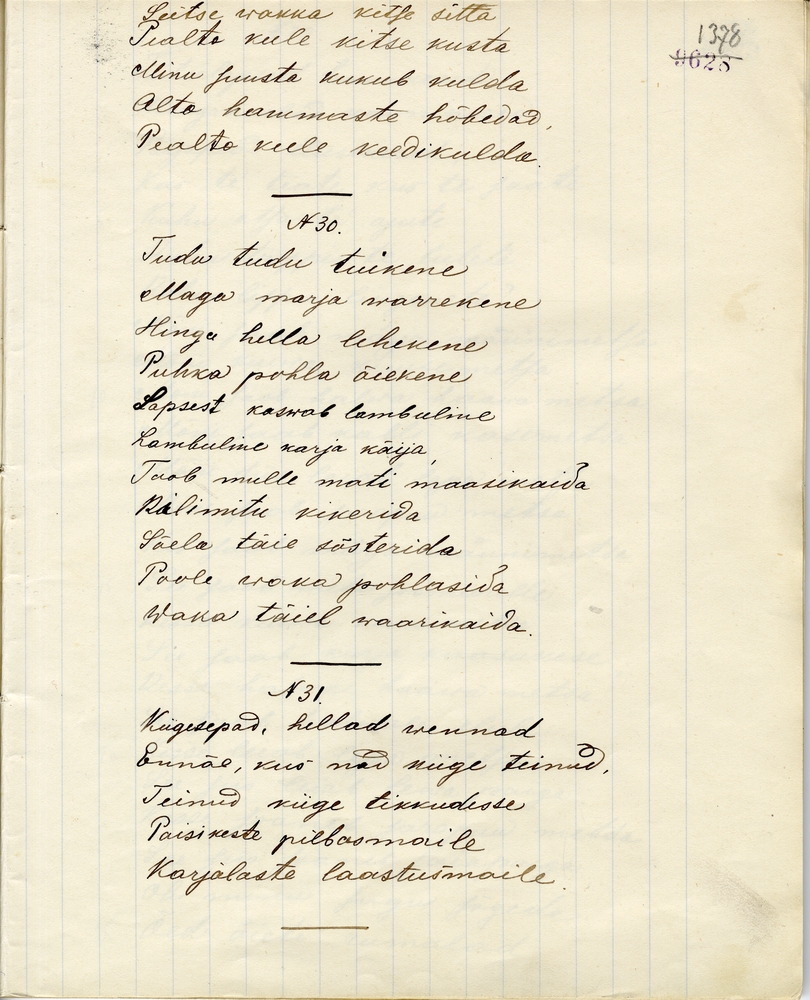 Seitse wakka kitse sitta
1378
Pealto keele kitse kusta
9628
Minu suusta kukub kulda
Alto hammaste hõbedad,
Pealto keele keedikulda.
N 30.
Tudu tudu tuikene
Maga marja warrekene
Hinga hella lehekene
Puhka pohla õiekene
Lapsest kaswab lambuline
Lambuline karja käija,
Toob mulle mati maasikaida
Külimitu kikerida
Sõela täie sõsterida
Poole waka pohlasida
Waka täiel waarikaida.
N 31.
Kiigesepad, hellad wennad
Ennäe, kus nad kiige teinud,
Teinud kiige tikkudesse
Paisikeste pilbasmaile
Karjalaste laastusmaile.